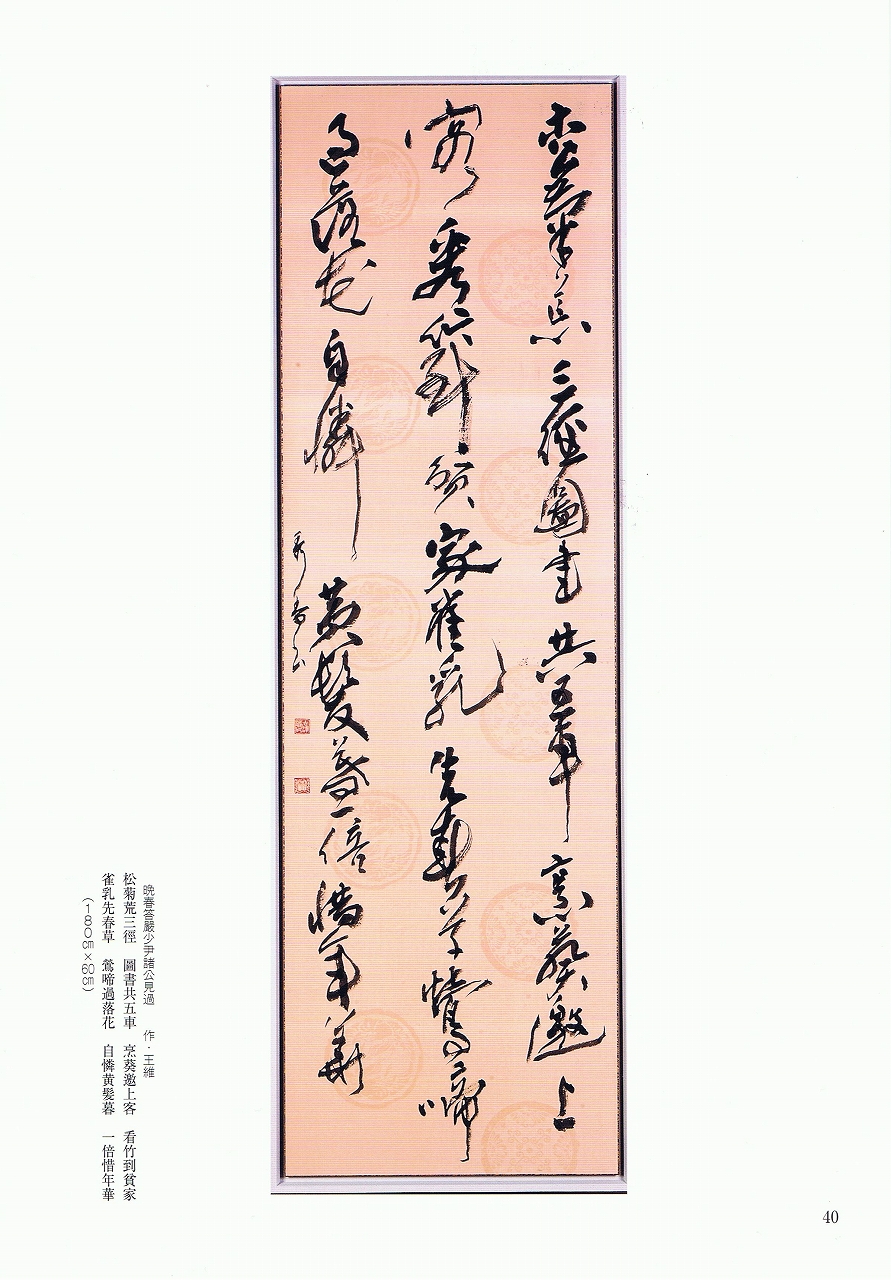 松菊荒三徑圖書共五車烹葵邀上
客看竹到貧家雀乳先春草鶯啼
過落花自憐黄髮暮一倍惜年華
晩春答嚴少尹諸公見過　作・王維
松菊荒三徑　圖書共五車　烹葵邀上客　看竹到貧家
雀乳先春草　鶯啼過落花　自憐黄髮暮　一倍惜年華
（180㎝×60㎝）
40